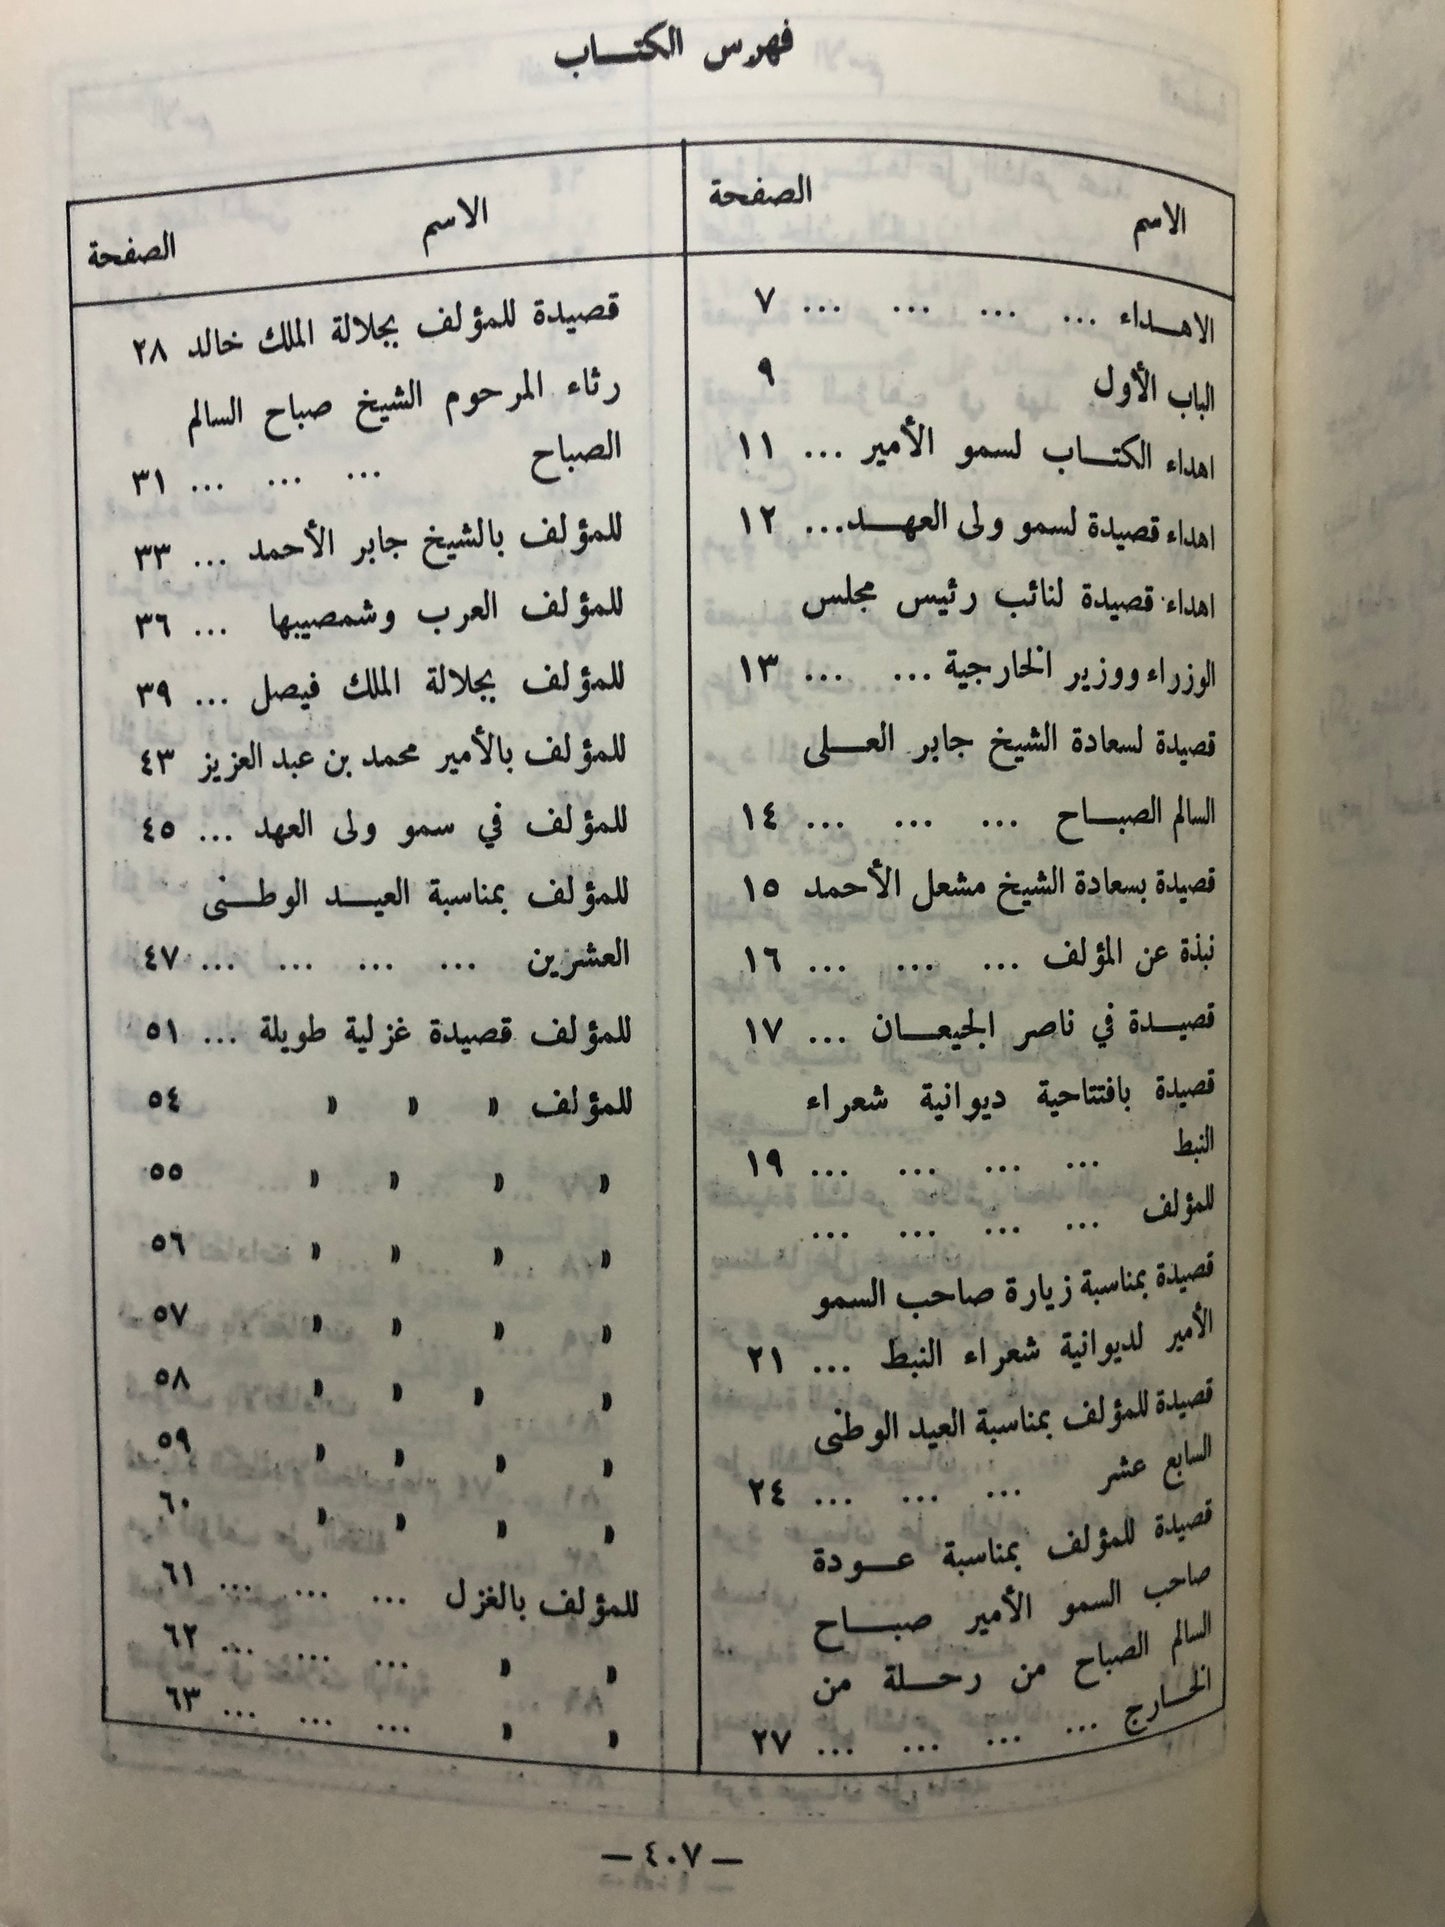 فهرس الكتـــاب
الاسم الصفحة
الاهـــداء ... ... ... ... ٧
الباب الأول ٩
اهداء الكتـــاب لسمو الأمير ... ١١
اهداء قصيدة لسمو ولى العهـــد... ١٢
اهداء قصيدة لنائب رئيس مجلس
الوزراء ووزير الخارجية ... ... ١٣
قصيدة لسعادة الشيخ جابر العـــلى
السالم الصبـــاح ... ... ... ١٤
قصيدة بسعادة الشيخ مشعل الأحمد ١٥
نبذة عن المؤلف ... ... ... ١٦
قصيـــدة في ناصر الجيعـــان ... ١٧
قصيدة بافتتاحية ديوانية شعراء
النبط ... ... ... ... ١٩
للمؤلف ... ... ... ...
قصيدة بمناسبة زيارة صاحب السمو
الأمير لديوانية شعراء النبط ... ٢١
قصيدة للمؤلف بمناسبة العيد الوطنى
السابع عشر ... ... ... ٢٤
قصيدة للمؤلف بمناسبة عـــودة
صاحب السمو الأمير صبـــاح
السالم الصباح من رحـــلة من
الخـــارج ... ... ... ... ٢٧
الاسم الصفحة
قصيدة للمؤلف بجلالة الملك خالد ٢٨
رثاء المرحوم الشيخ صباح السالم
الصباح ... ... ... ٣١
للمؤلف بالشيخ جابر الأحمد ... ٣٣
للمؤلف العرب وشمصيبها ... ٣٦
للمؤلف بجلالة الملك فيصل ... ٣٩
للمؤلف بالأمير محمد بن عبد العزيز ٤٣
للمؤلف في سمو ولى العهد ... ٤٥
للمؤلف بمناسبة العيـــد الوطـــنى
العشرين ... ... ... ... ٤٧
للمؤلف قصيدة غزلية طويلة ... ٥١
للمؤلف » » » ٥٤
» » » » ٥٥
» » » » ٥٦
» » » » ٥٧
» » » » ٥٨
» » » » ٥٩
» » » » ٦٠
للمؤلف بالغزل ... ... ... ٦١
» » ... ... ... ٦٢
» » ... ... ... ٦٣
— ٤٠٧ —